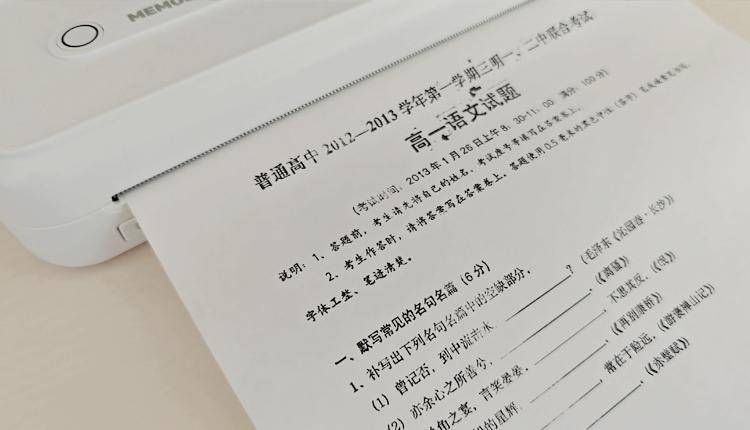 MEMO
普通高中 2012—2013 学年第一学期三明一、二中联合考试
高一语文试题
(考试时间：2013年1月26日上午8:30-11:00 满分：100分)
说明：1、答题前，考生请先将自己的姓名、考试座号等填写在答案卷上。
2、考生作答时，请将答案写在答案卷上，答题使用0.5毫米的黑色中性（签字）
字体工整、笔迹清楚。
一、默写常见的名句名篇（6分）
1、补写出下列名句名篇中的空缺部分。
(1) 曾记否，到中流击水，？（毛泽东《沁园春·长沙》）
(2) 亦余心之所善兮，《离骚》
角之宴，言笑晏晏，不思其反，《氓》
的星辉，《再别康桥》
常在于险远，《游褒禅山记》
《赤壁赋》